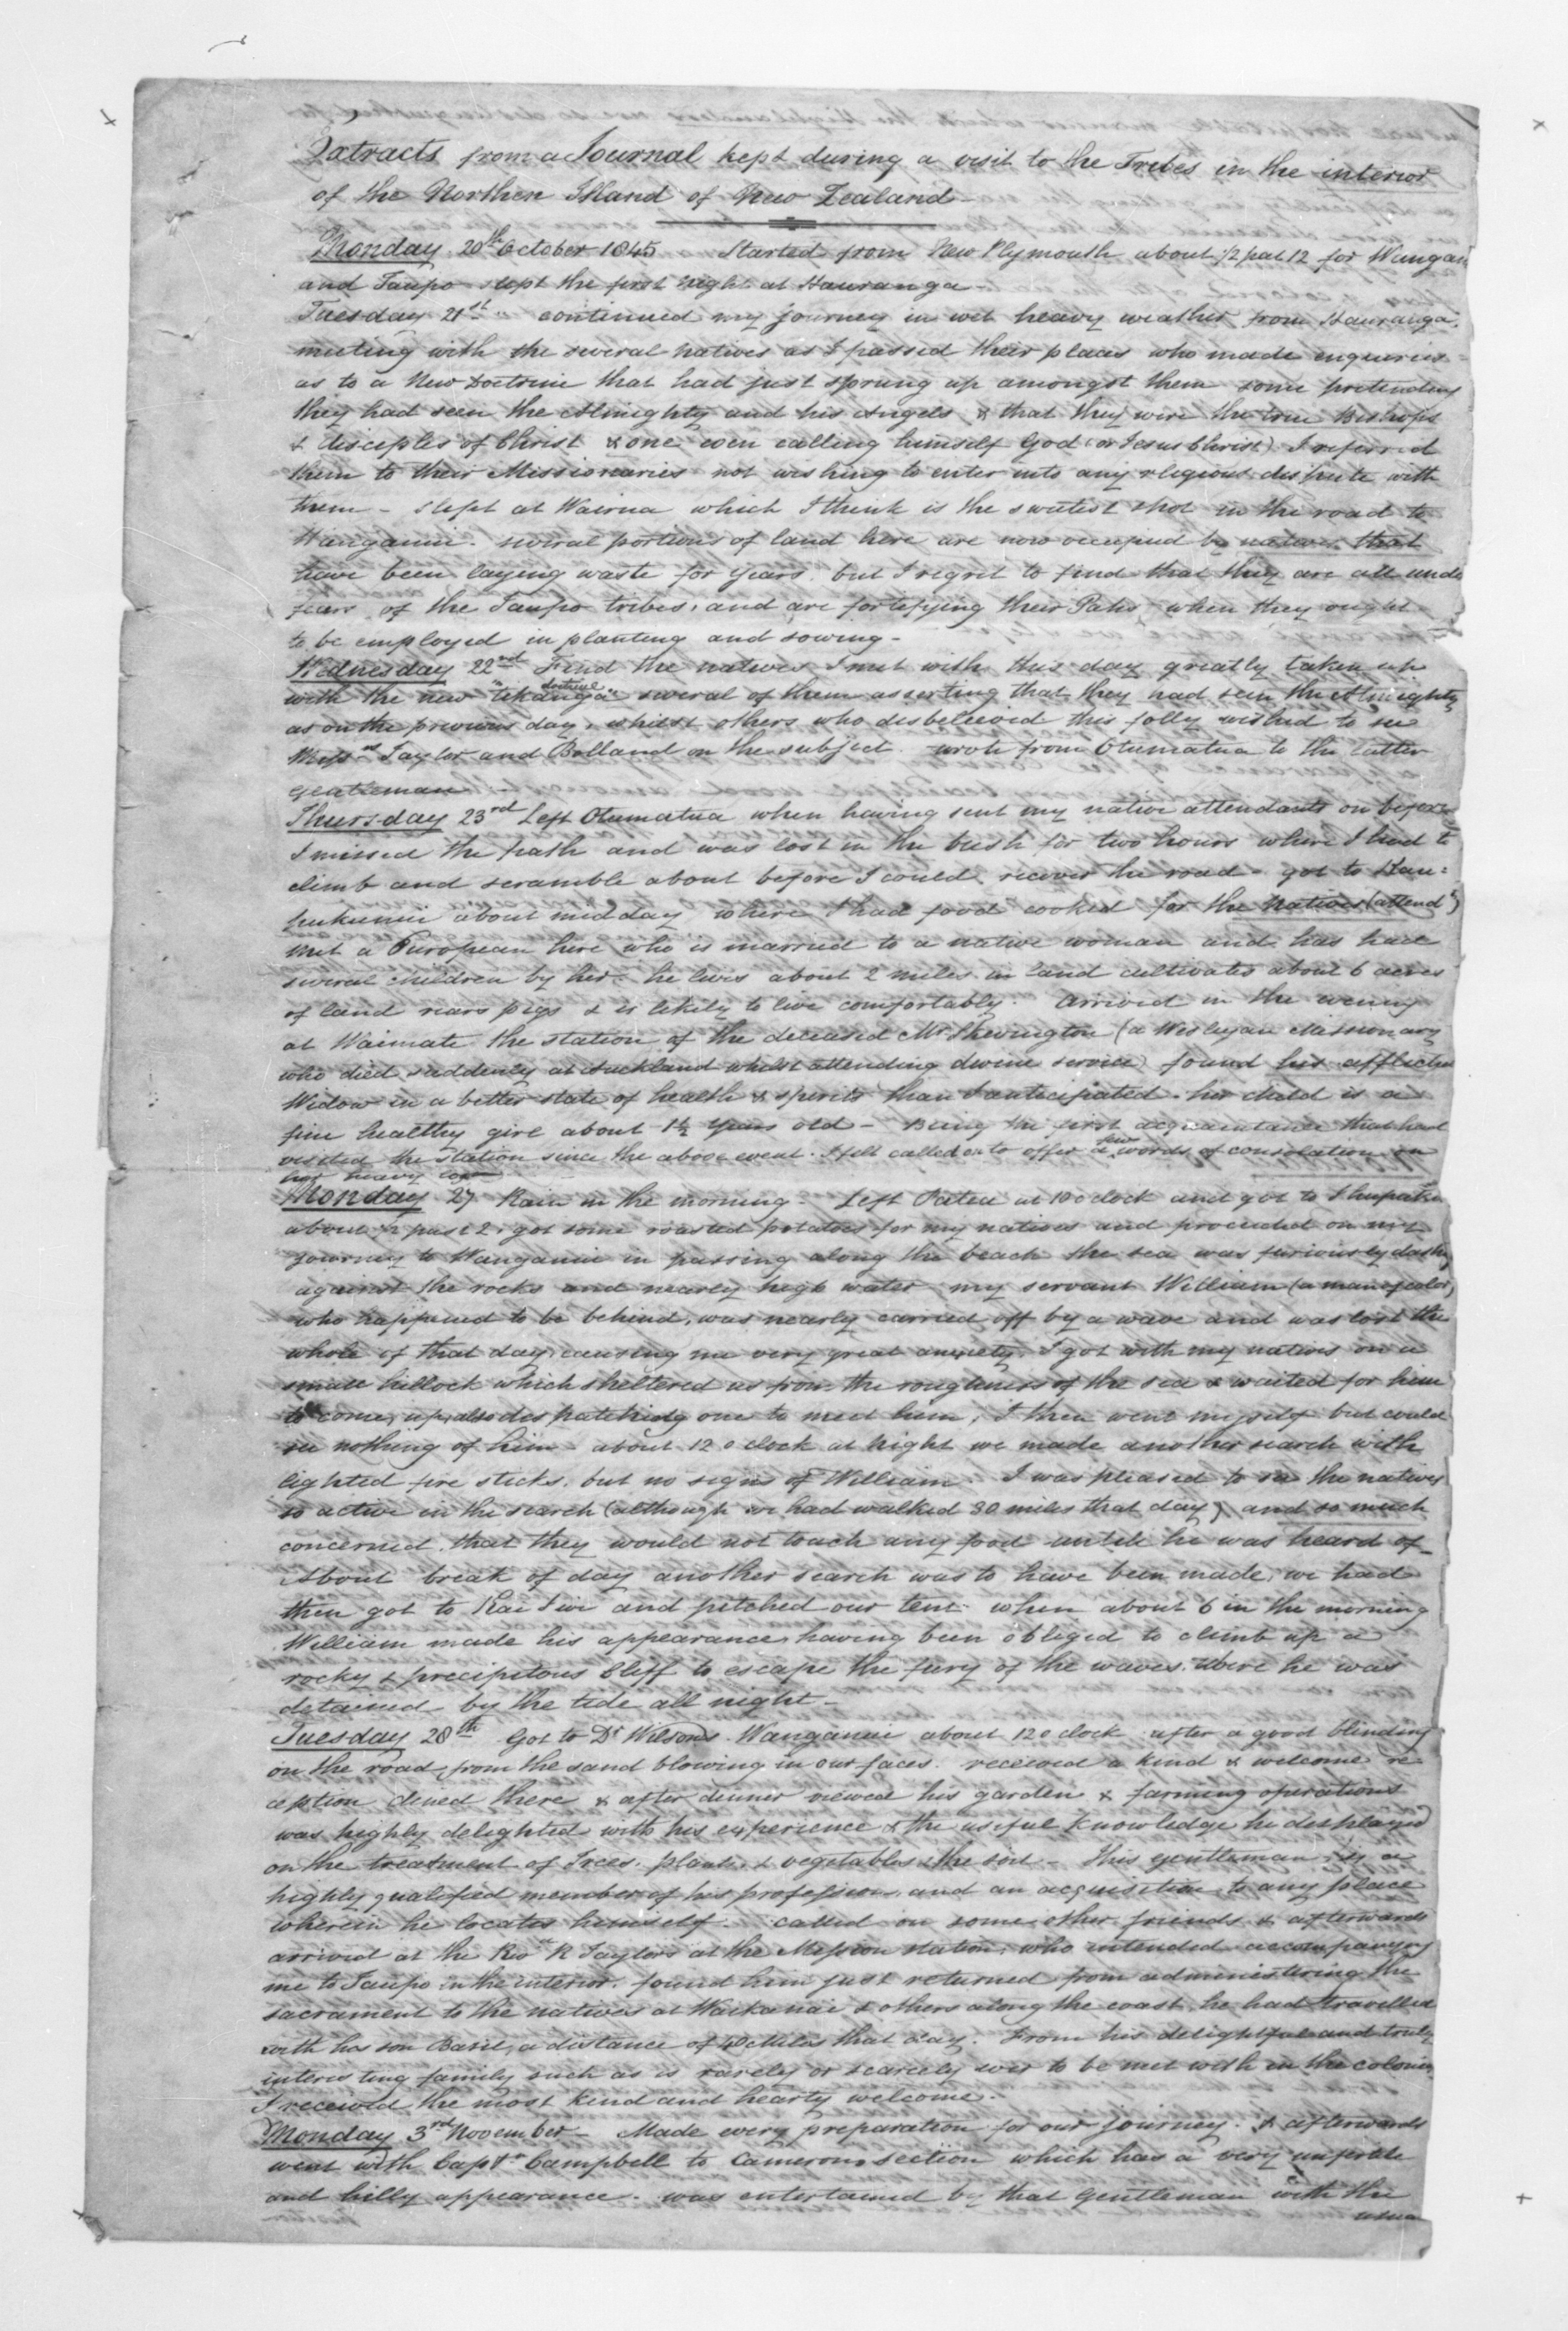 Extracts from a Journal kept during a visit to the Tribes in the interior
of the Northern Island of New Zealand -
Monday 20th October 1845 Started from New Plymouth about 1/2 past 12 for Wangan
and Taupo slept the first night at Hauranga -
Tuesday 21st " continued my journey in wet heavy weather from Hauranga,
meeting with the several natives as I passed their places who made enquiries
as to a New Doctrine that had just sprung up amongst them some pretending
they had seen the Almighty and his Angels & that they were the true Bishops
& disciples of Christ & one even calling himself God (or Jesus Christ) I referred
them to their Missionaries not wishing to enter into any religious dispute with
them - slept at Wairua which I think is the sweetest spot in the road to
Wanganui. several portions of land here are now occupied by natives that
have been laying waste for years, but I regret to find that they are all unde
fears of the Taupo tribes, and are fortifying their Pahs when they ought
to be employed in planting and sowing -
Wednesday 22nd Find the natives I met with this day greatly taken up
with the new "tikanga" doctrine several of them asserting that they had seen the Almighty
as on the previous day, whilst others who disbeleived this folly wished to see
Messrs Taylor and Bolland on the subject. wrote from Otumatua to the latter
gentleman -
Thursday 23rd Left Otumatua when having sent my native attendants on before
I missed the path and was lost in the bush for two hours where I had to
climb and scramble about before I could recover the road - got to Hau=
pukunui about mid day where I had food cooked for the Natives (attendts)
met a European here who is married to a native woman and has had
several children by her - he lives about 2 miles in land cultivates about 6 acres
of land rears pigs & is likely to live comfortably. Arrived in the evening
at Waimate the station of the deceased Mr Skevington (a Wesleyan Missionary
who died suddenly at Auckland whilst attending divine service) found his afflicted
Widow in a better state of health & spirits than I anticipated. her child is a
fine healthy girl about 1½ years old - Being the first acquaintance that had
visited the station since the above event. I felt called on to offer a few words of consolation on
her heavy loss
Monday 27 Rain in the morning - Left Patea at 10 oclock and got to
about ½ past 2. got some roasted potatoes for my natives and proceeded on my
journey to Wanganui in passing along the beach the sea was furiously dashing
against the rocks and nearly high water my servant William (a man of color)
who happened to be behind, was nearly carried off by a wave and was lost the
whole of that day, causing me very great anxiety. I got with my natives on a
small hillock which sheltered us from the roughness of the sea & waited for him
to come up, also despatching one to meet him, I then went myself but could
see nothing of him - about 12 o clock at night we made another search with
lighted fire sticks, but no signs of William. I was pleased to see the natives
so active in the search (although we had walked 30 miles that day) and so much
concerned, that they would not touch any food until he was heard of -
About break of day another search was to have been made, we had
then got to Kai Iwi and pitched our tent when about 6 in the morning
William made his appearance, having been obliged to climb up a
rocky & precipitous Cliff to escape the fury of the waves. where he was
detained by the tide all night -
Tuesday 28th Got to Dr Wilsons. Wanganui about 12 o clock after a good blinding
on the road, from the sand blowing in our faces. received a kind & welcome re-
ception dined there & after dinner viewed his garden & farming operations
was highly delighted with his experience & the useful knowledge he displayed
on the treatment of Trees, plants & vegetables & the soil - This gentleman is a
highly qualified member of his profession, and an acquisition to any place
wherein he locates himself. called on some other friends & afterwards
arrived at the Revd R Taylors at the Mission station, who intended accompanying
me to Taupo in the interior. found him just returned from administering the
sacrament to the natives at Waikanai & others along the coast, he had travelled
with his son Basil, a distance of 40 Miles that day. From his delightful and truly
interesting family such as is rarely or scarcely ever to be met with in the colonies
I received the most kind and hearty welcome.
Monday 3rd November - Made every preparation for our journey. & afterwards
went with Captn Campbell to Camerons section which has a very unfertile
and hilly appearance. was entertained by that Gentleman with the
usual